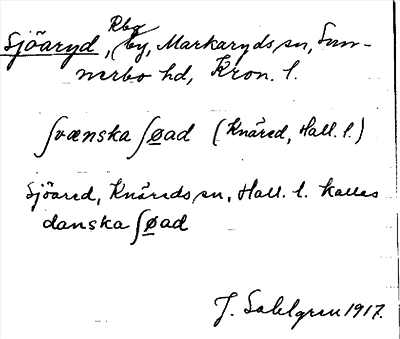 Sjöaryd, Rbg
by, Markaryds sn, Sun-
nerbo hd, Kron. l.
ʃvænska ʃøad (Knäred, Hall. l.)
Sjöared, Knäreds sn, Hall. l. kallas
danska ʃøad
J. Sahlgren 1917.